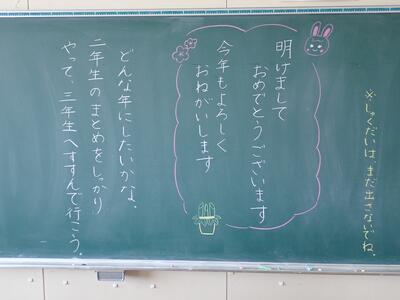 ※しゅくだいは、まだ出さないでね。
明けまして
おめでとうございます
今年もよろしく
おねがいします
どんな年にしたいかな。
二年生のまとめをしっかり
やって、三年生へすすんで行こう。